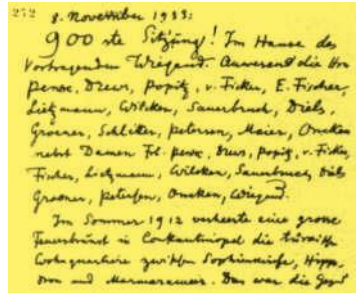 272
8. November 1933:
900 ste Sitzung! Im Hause des
Vortragenden Wiegand. Anwesend die Hrn
Penck, Drews, Popitz, v. Ficker, E. Fischer,
Lietzmann, Wilcken, Sauerbruch, Diels,
Groener, Schlitter, Petersen, Maier, Oncken
nebst Damen Frl. Penck, Drews, Popitz, v. Ficker,
Fischer, Lietzmann, Wilcken, Sauerbruch, Diels
Groener, Petersen, Oncken, Wiegand.
Im Sommer 1912 verheerte eine grosse
Feuersbrunst in Constantinopel die türkischen
Wohnquartiere zwischen Sophienkirche, Hippo-
drom und Marmarameer. Das war die Gegend